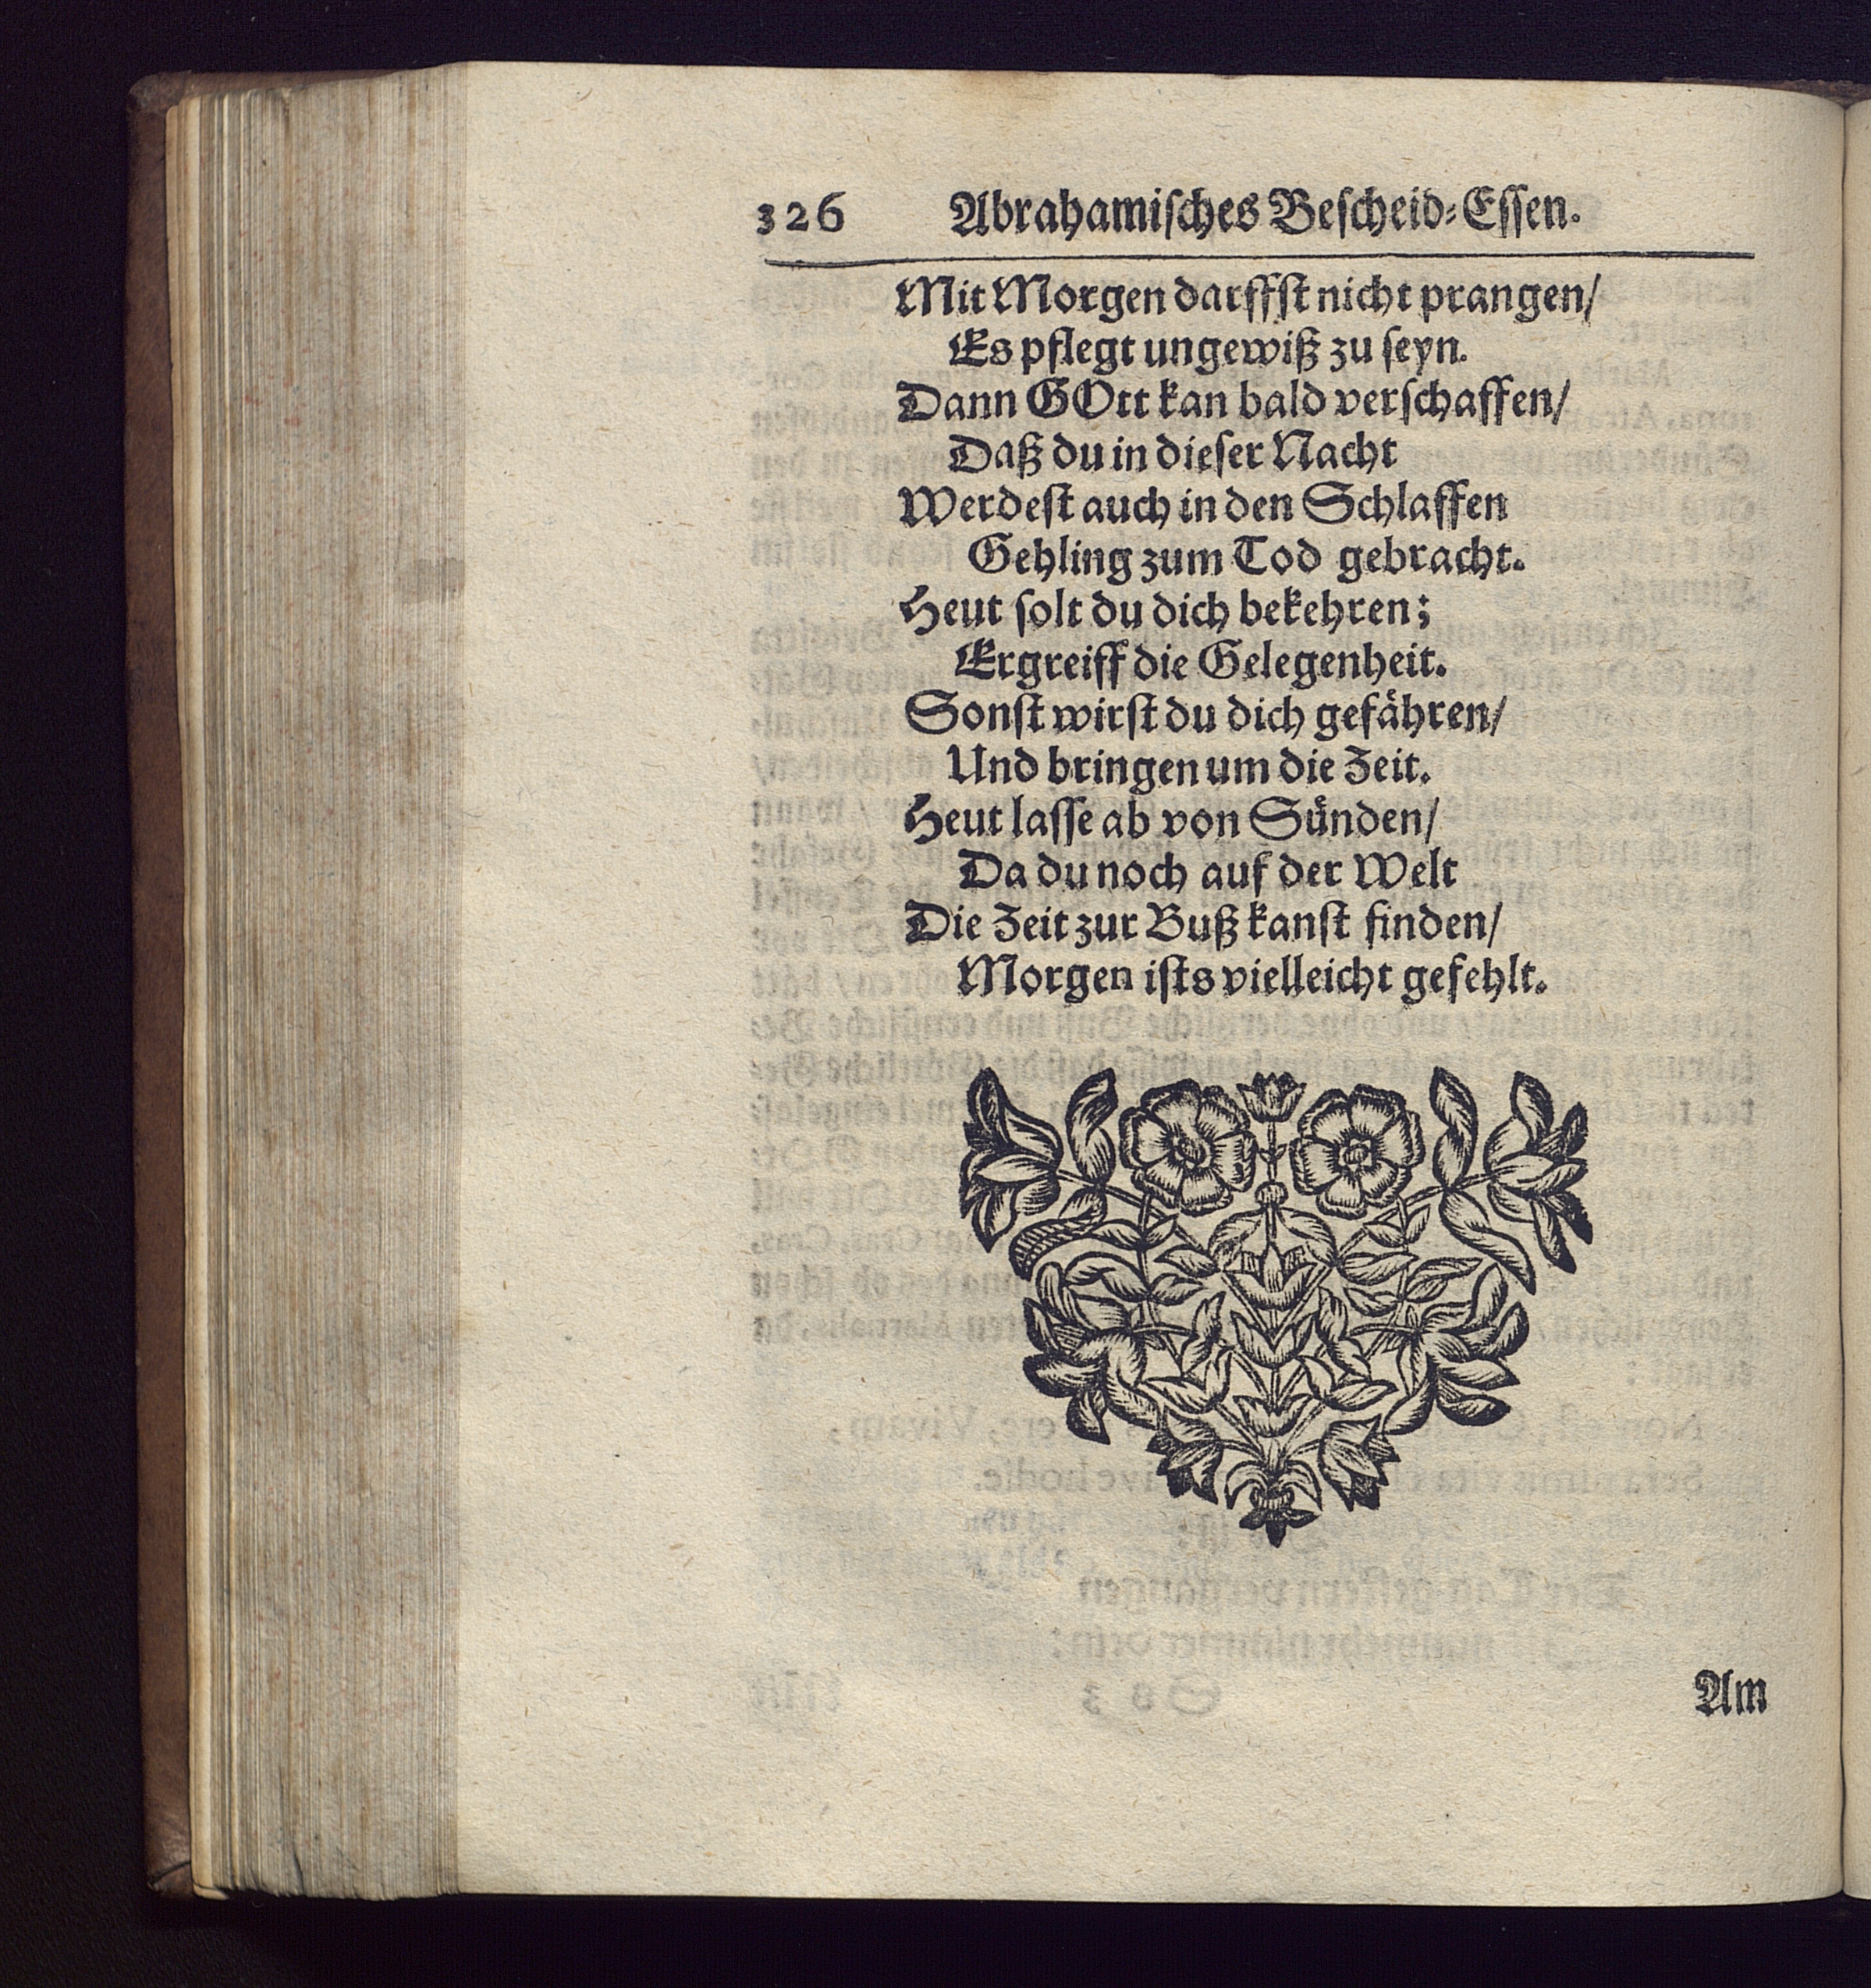 326 Abrahamisches Bescheid-Essen.
Mit Morgen darffst nicht prangen/
Es pflegt ungewiß zu seyn.
Dann GOtt kan bald verschaffen/
Daß du in dieser Nacht
Werdest auch in den Schlaffen
Gehling zum Tod gebracht.
Heut solt du dich bekehren;
Ergreiff die Gelegenheit.
Sonst wirst du dich gefähren/
Und bringen um die Zeit.
Heut lasse ab von Sünden/
Da du noch auf der Welt
Die Zeit zur Buß kanst finden/
Morgen ists vielleicht gefehlt.
Am